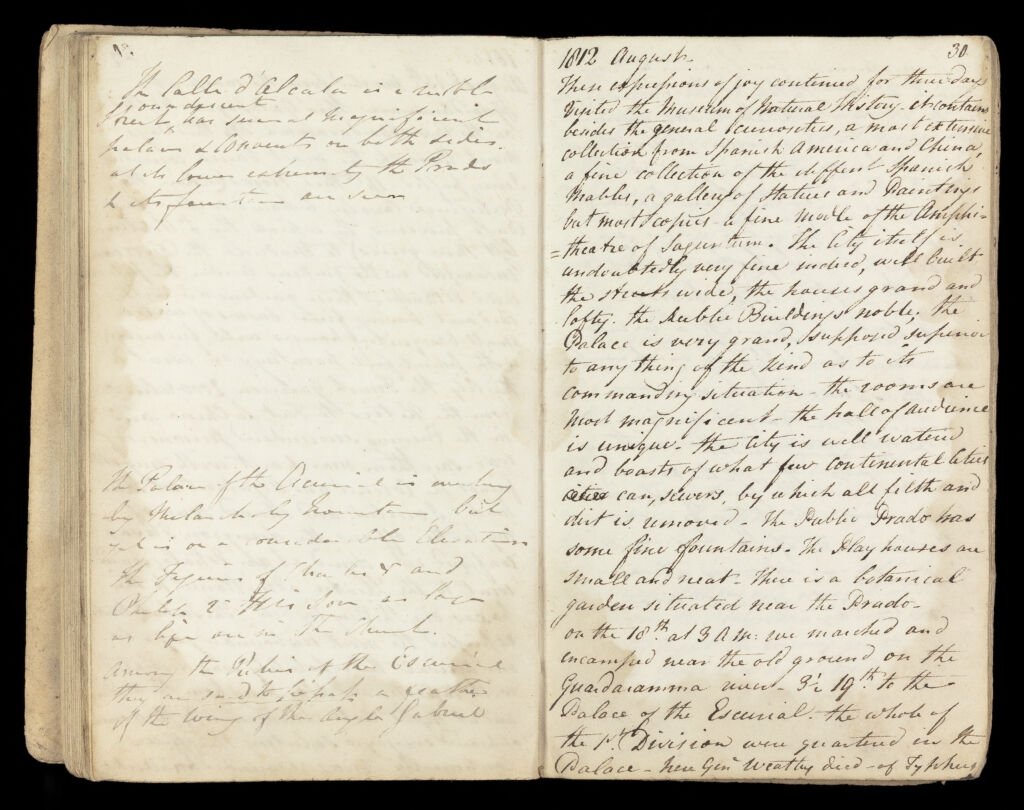 The Calle d'Alcala is a noble
Street, has several magnificent
palaces & Convents on both sides.
at its lower extremity the Prado
& its fountain are seen
The Palace of the Escurial is
by Melancholy Mountains, but
yet is on a considerable Elevation
The Figures of Charles 5 and
Philip 2 His Son as large
as life are in The Church.
among the Relics of the Escurial
they are said to possess a feather
of the Wing of the Angel Gabriel
1812 August
30
These expressions of joy continued for three days
Visited the Museum of Natural History - it contains
besides the general Curiosities, a most extensive
collection from Spanish America and China,
a fine collection of the different Spanish
Marbles, a gallery of Statues and Paintings
but most Copies - a fine Modle of the Amphi-
=theatre of Saguntum. The City itself is
undoubtedly very fine indeed, well built
the streets wide, the houses grand and
lofty. the Public Buildings noble. the
Palace is very grand, & supposed superior
to any thing of the kind as to its
commanding situation - the rooms are
most magnificent - the hall of audience
is unique - the City is well watered
and boasts of what few continental Cities
can, sewers, by which all filth and
dirt is removed - The Public Prado has
some fine fountains - The Play houses are
small and neat - There is a botanical
garden situated near the Prado -
on the 18th at 3 A M: we marched and
encamped near the old ground on the
Guardaramma river - 19th to the
Palace of the Escurial - the whole of
the 1st Division were quartered in the
Palace - here Genl died - of Typhus